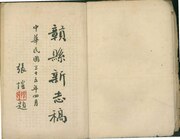 贛縣新志稿
中華民國三十五年四月
張愷題